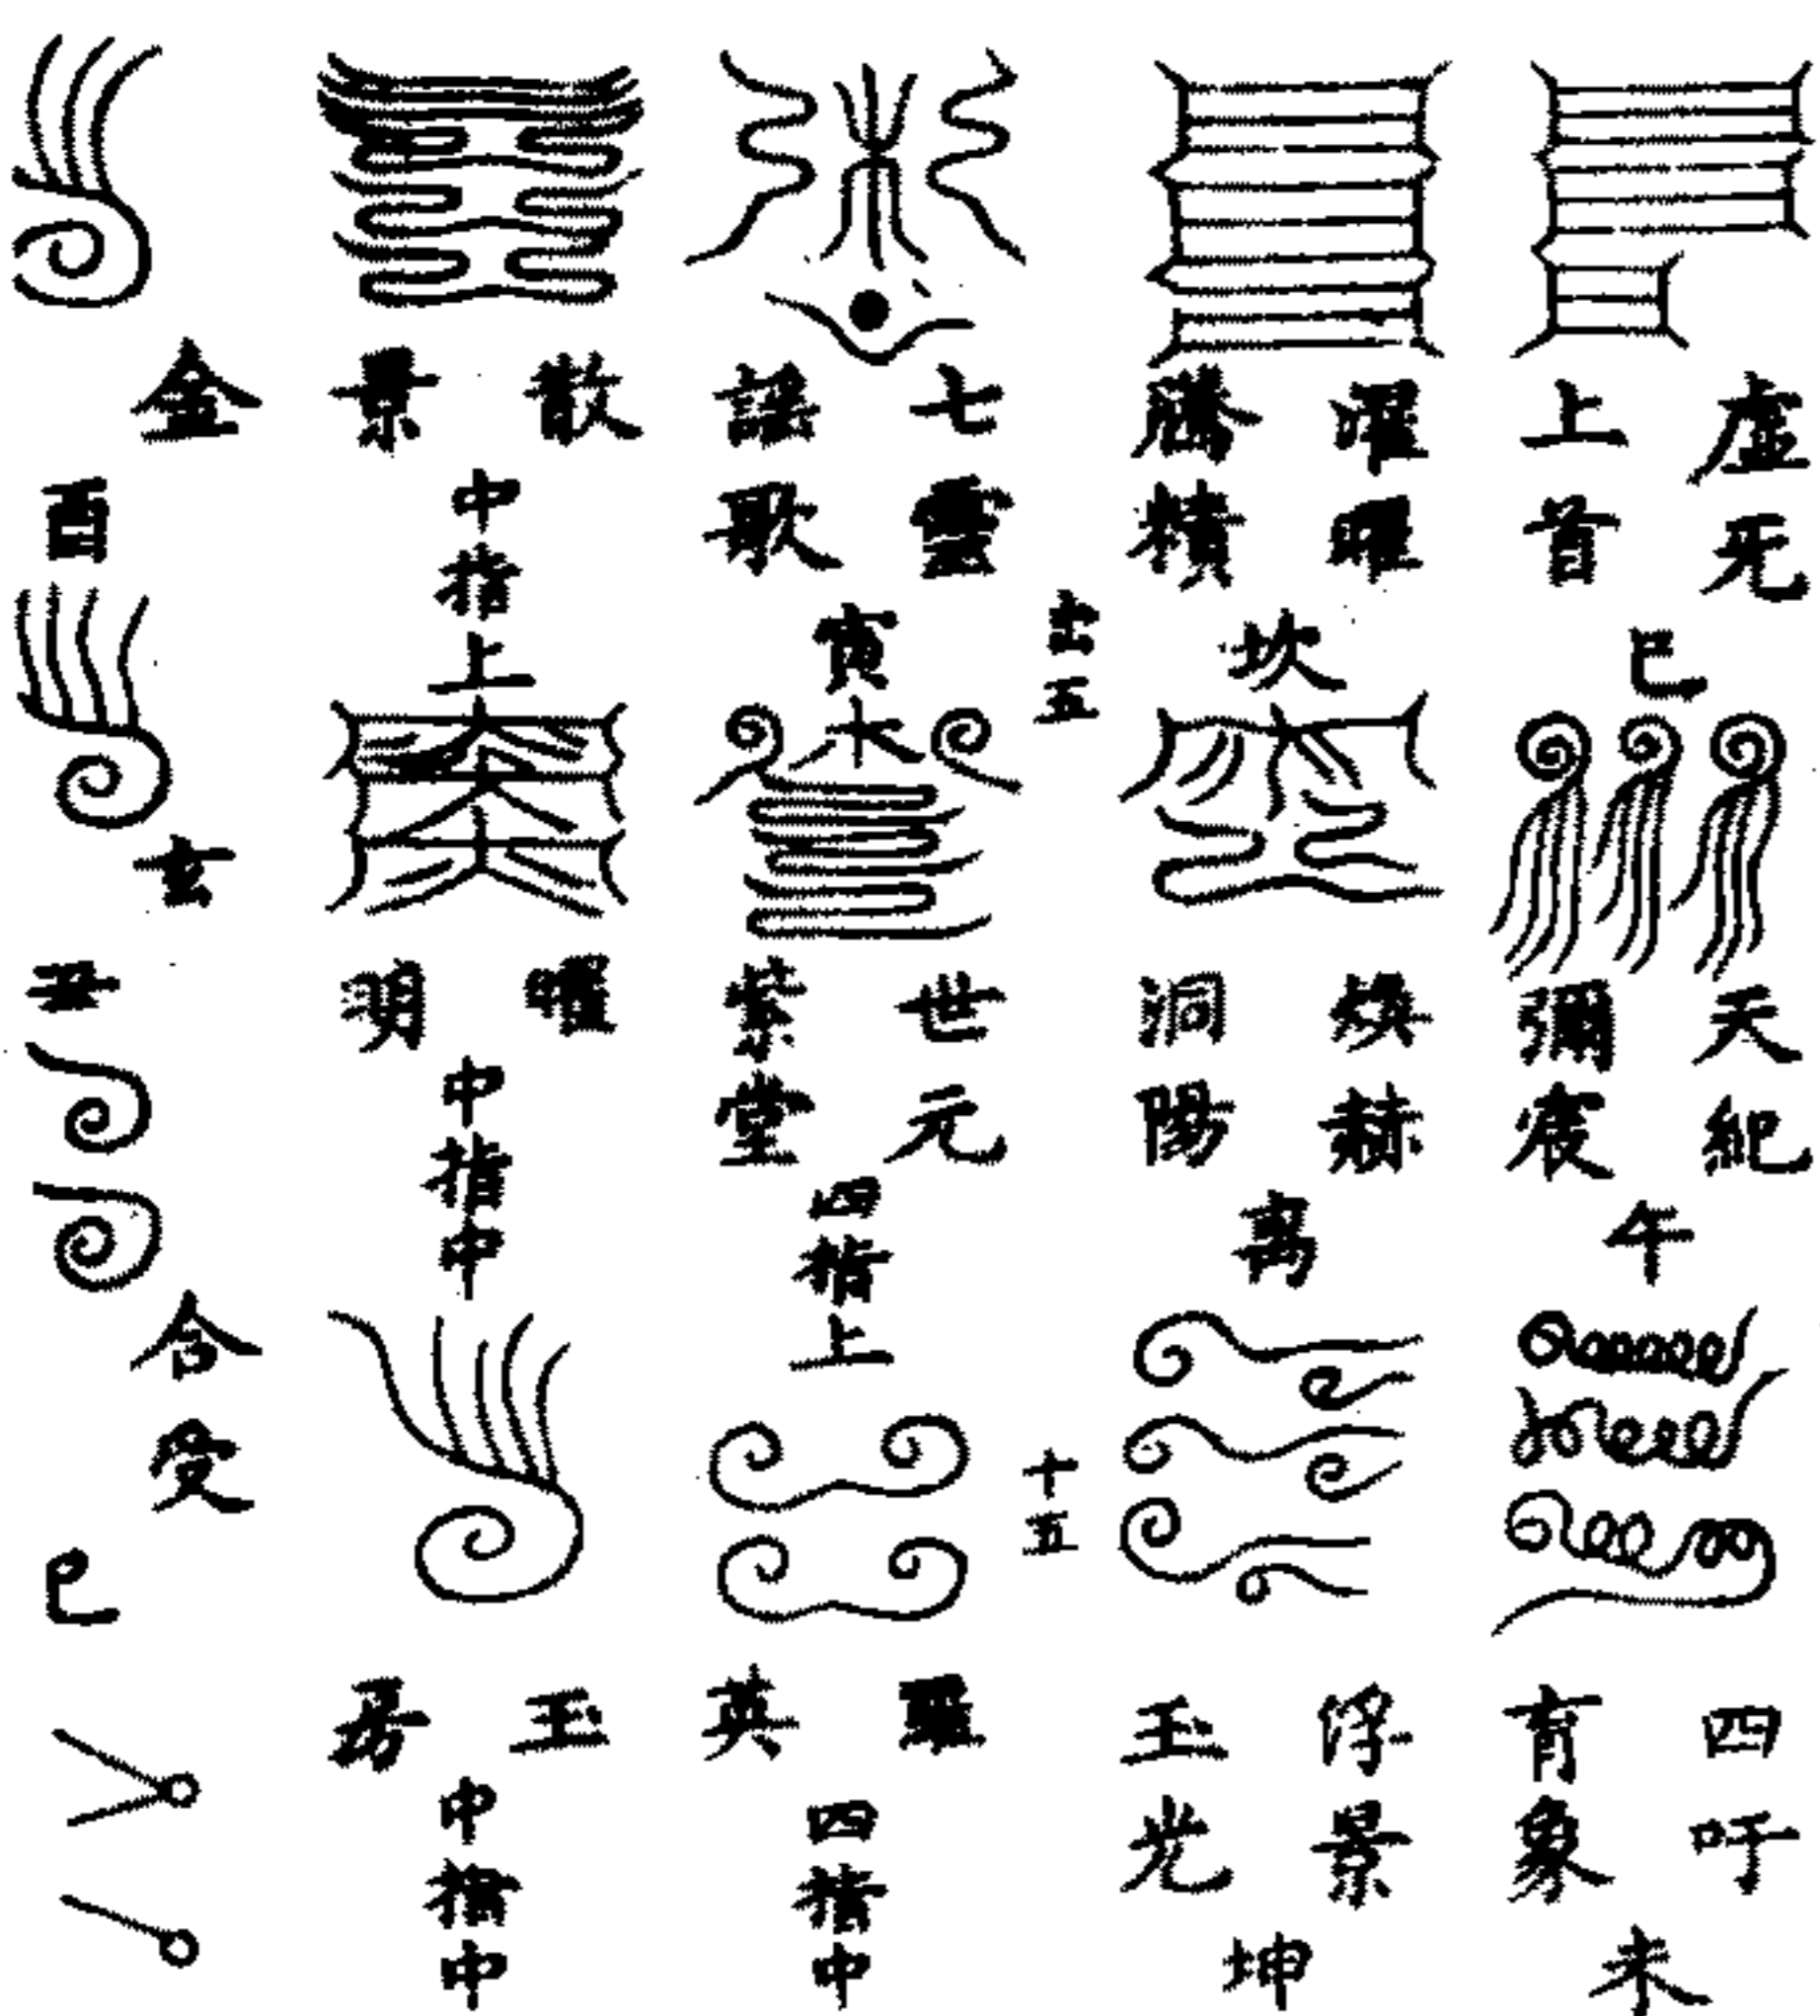 虛无上首
巳
天紀彌宸
午
四吁育象
未
曜曜騰精
坎
煥赫洞陽
离
浮景玉光
坤
出五
十五
七靈謠歌
寅
世元紫堂
四指上
羅英
四指中
散景
中指上
曜明
中指中
玉房
中指中
金
酉
玄
丑
合受
巳